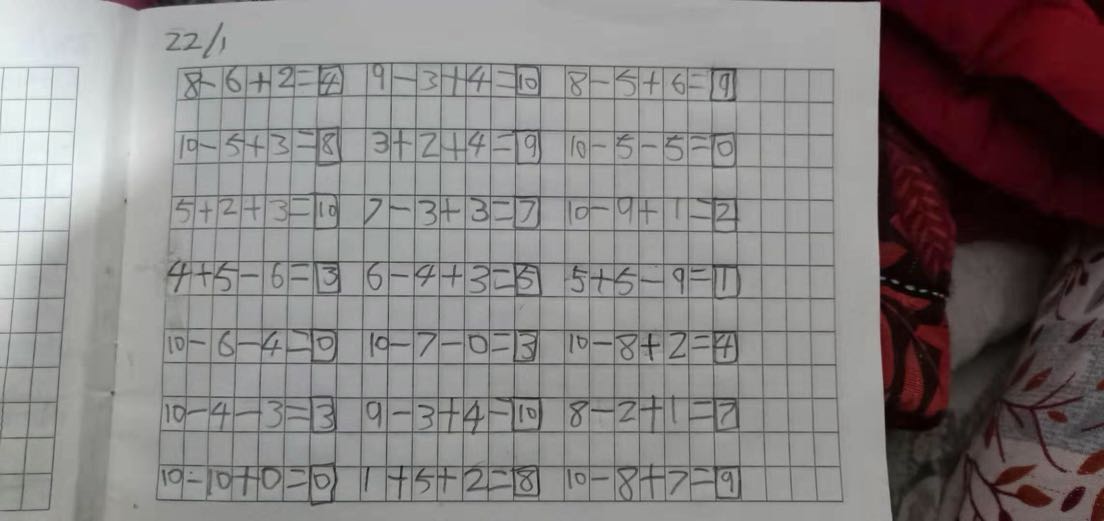 22/1
8-6+2=4 9-3+4=10 8-5+6=9
10-5+3=8 3+2+4=9 10-5-5=0
5+2+3=10 7-3+3=7 10-9+1=2
4+5-6=3 6-4+3=5 5+5-9=1
10-6-4=0 10-7-0=3 10-8+2=4
10-4-3=3 9-3+4=10 8-2+1=7
10-10+0=0 1+5+2=8 10-8+7=9